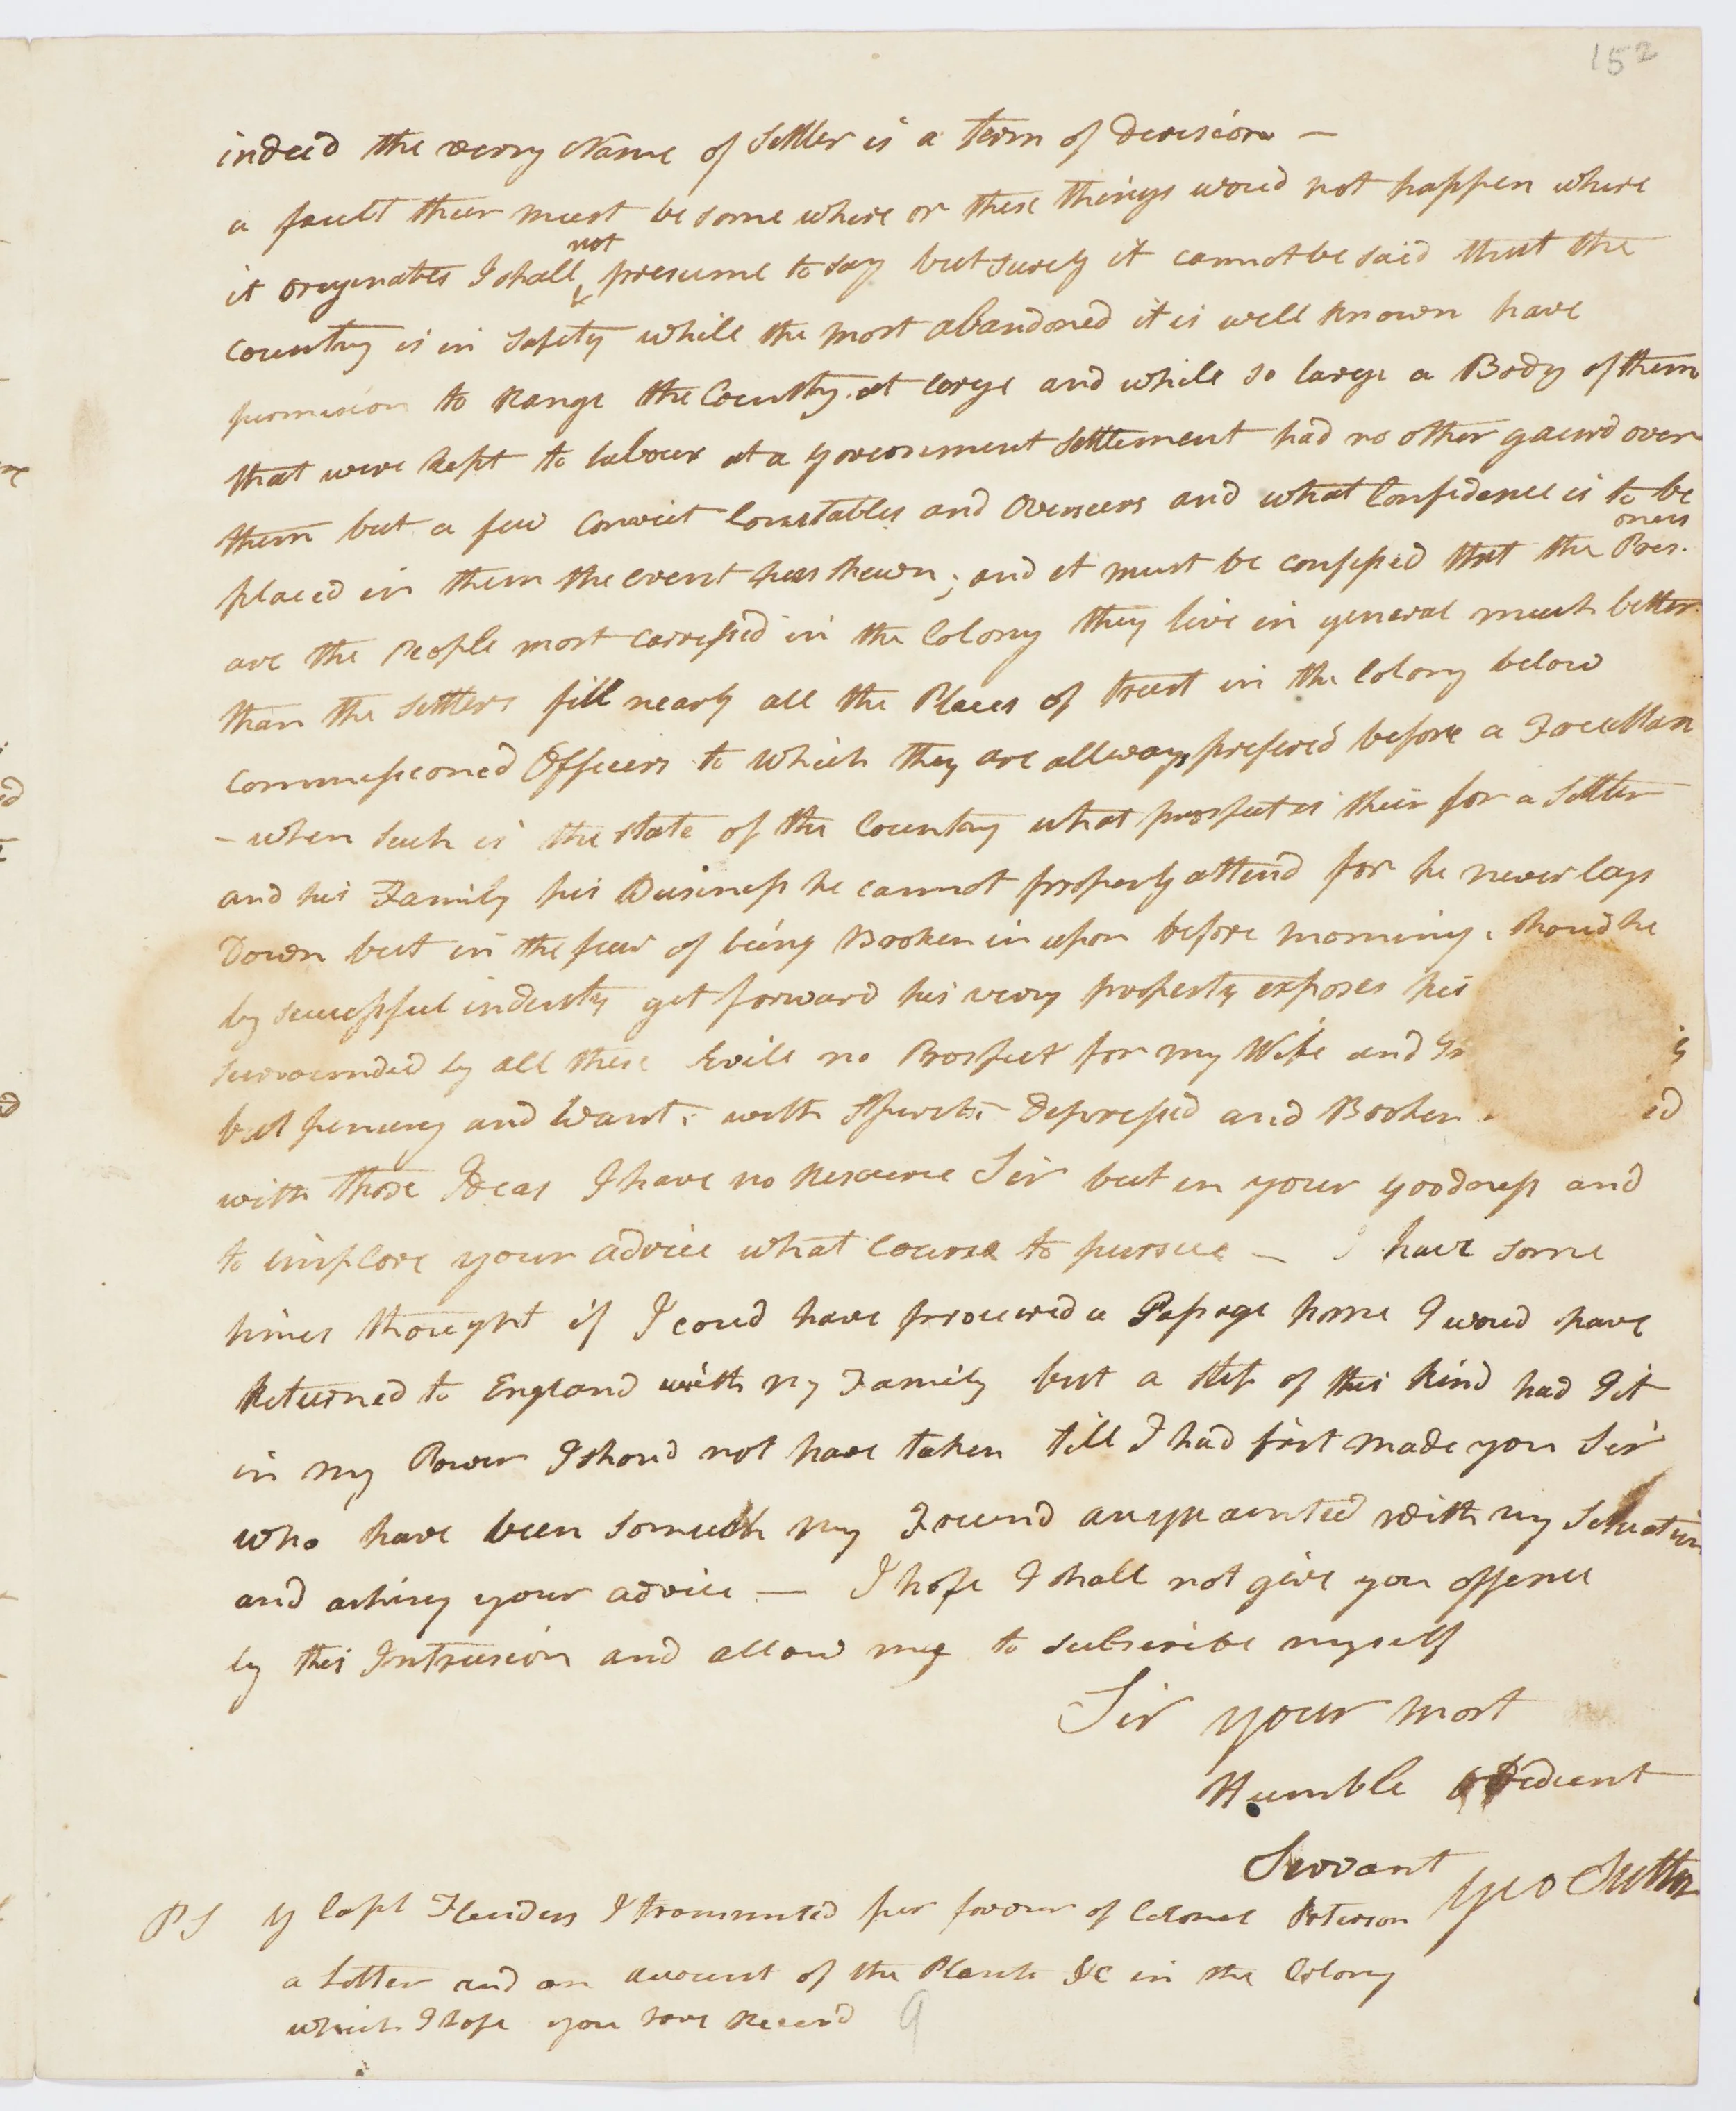 152
indeed the verry Name of Settler is a term of Derision —
a fault their must be some where or these things woud not happen where
it origenates I shall not presume to say but surely it cannot be said that the
Country is in Safety while the most abandoned it is well known have
permision to Range the Country at large and while so large a Body of them
that were kept to labour at a government Settlement had no other gaurd over
them but a few Convict Constables and Overseers and what Confidence is to be
placed in them the event has shewn; and it must be confessed that the Pris-oners
are the People most carressed in the Colony they live in general much better
than the Settlers fill nearly all the Places of trust in the Colony below
Commissioned Officers to which they are allways prefered before a Free Man
- when Such is the state of the Country what prospect is their for a Settler
and his Family his Business he cannot properly attend for he never lays
Down but in the fear of being Broken in upon before morning. shoud he
by successful industry get forward his verry property exposes his
surrounded by all these Evils no Prospect for my Wife and
but penury and want. with Spirits Depressed and Broken
with those Ideas I have no Resource Sir but in your goodness and
to implore your advice what Course to pursue — I have some
times thought if I coud have procured a Passage home I woud have
Returned to England with my Family but a step of this kind had I it
in my Power I shoud not have taken till I had first made you Sir
who have been so much my Freind acquainted with my Situation
and asking your advice — I hope I shall not give you offence
by this Intrusion and allow me to subscribe myself
Sir your most
Humble obedient
Servant Geo Suttor
PS By Capt Flinders I transmited per favour of Colonel Paterson
a Letter and an account of the Plants &c in the Colony
which I hope you have Receivd
9